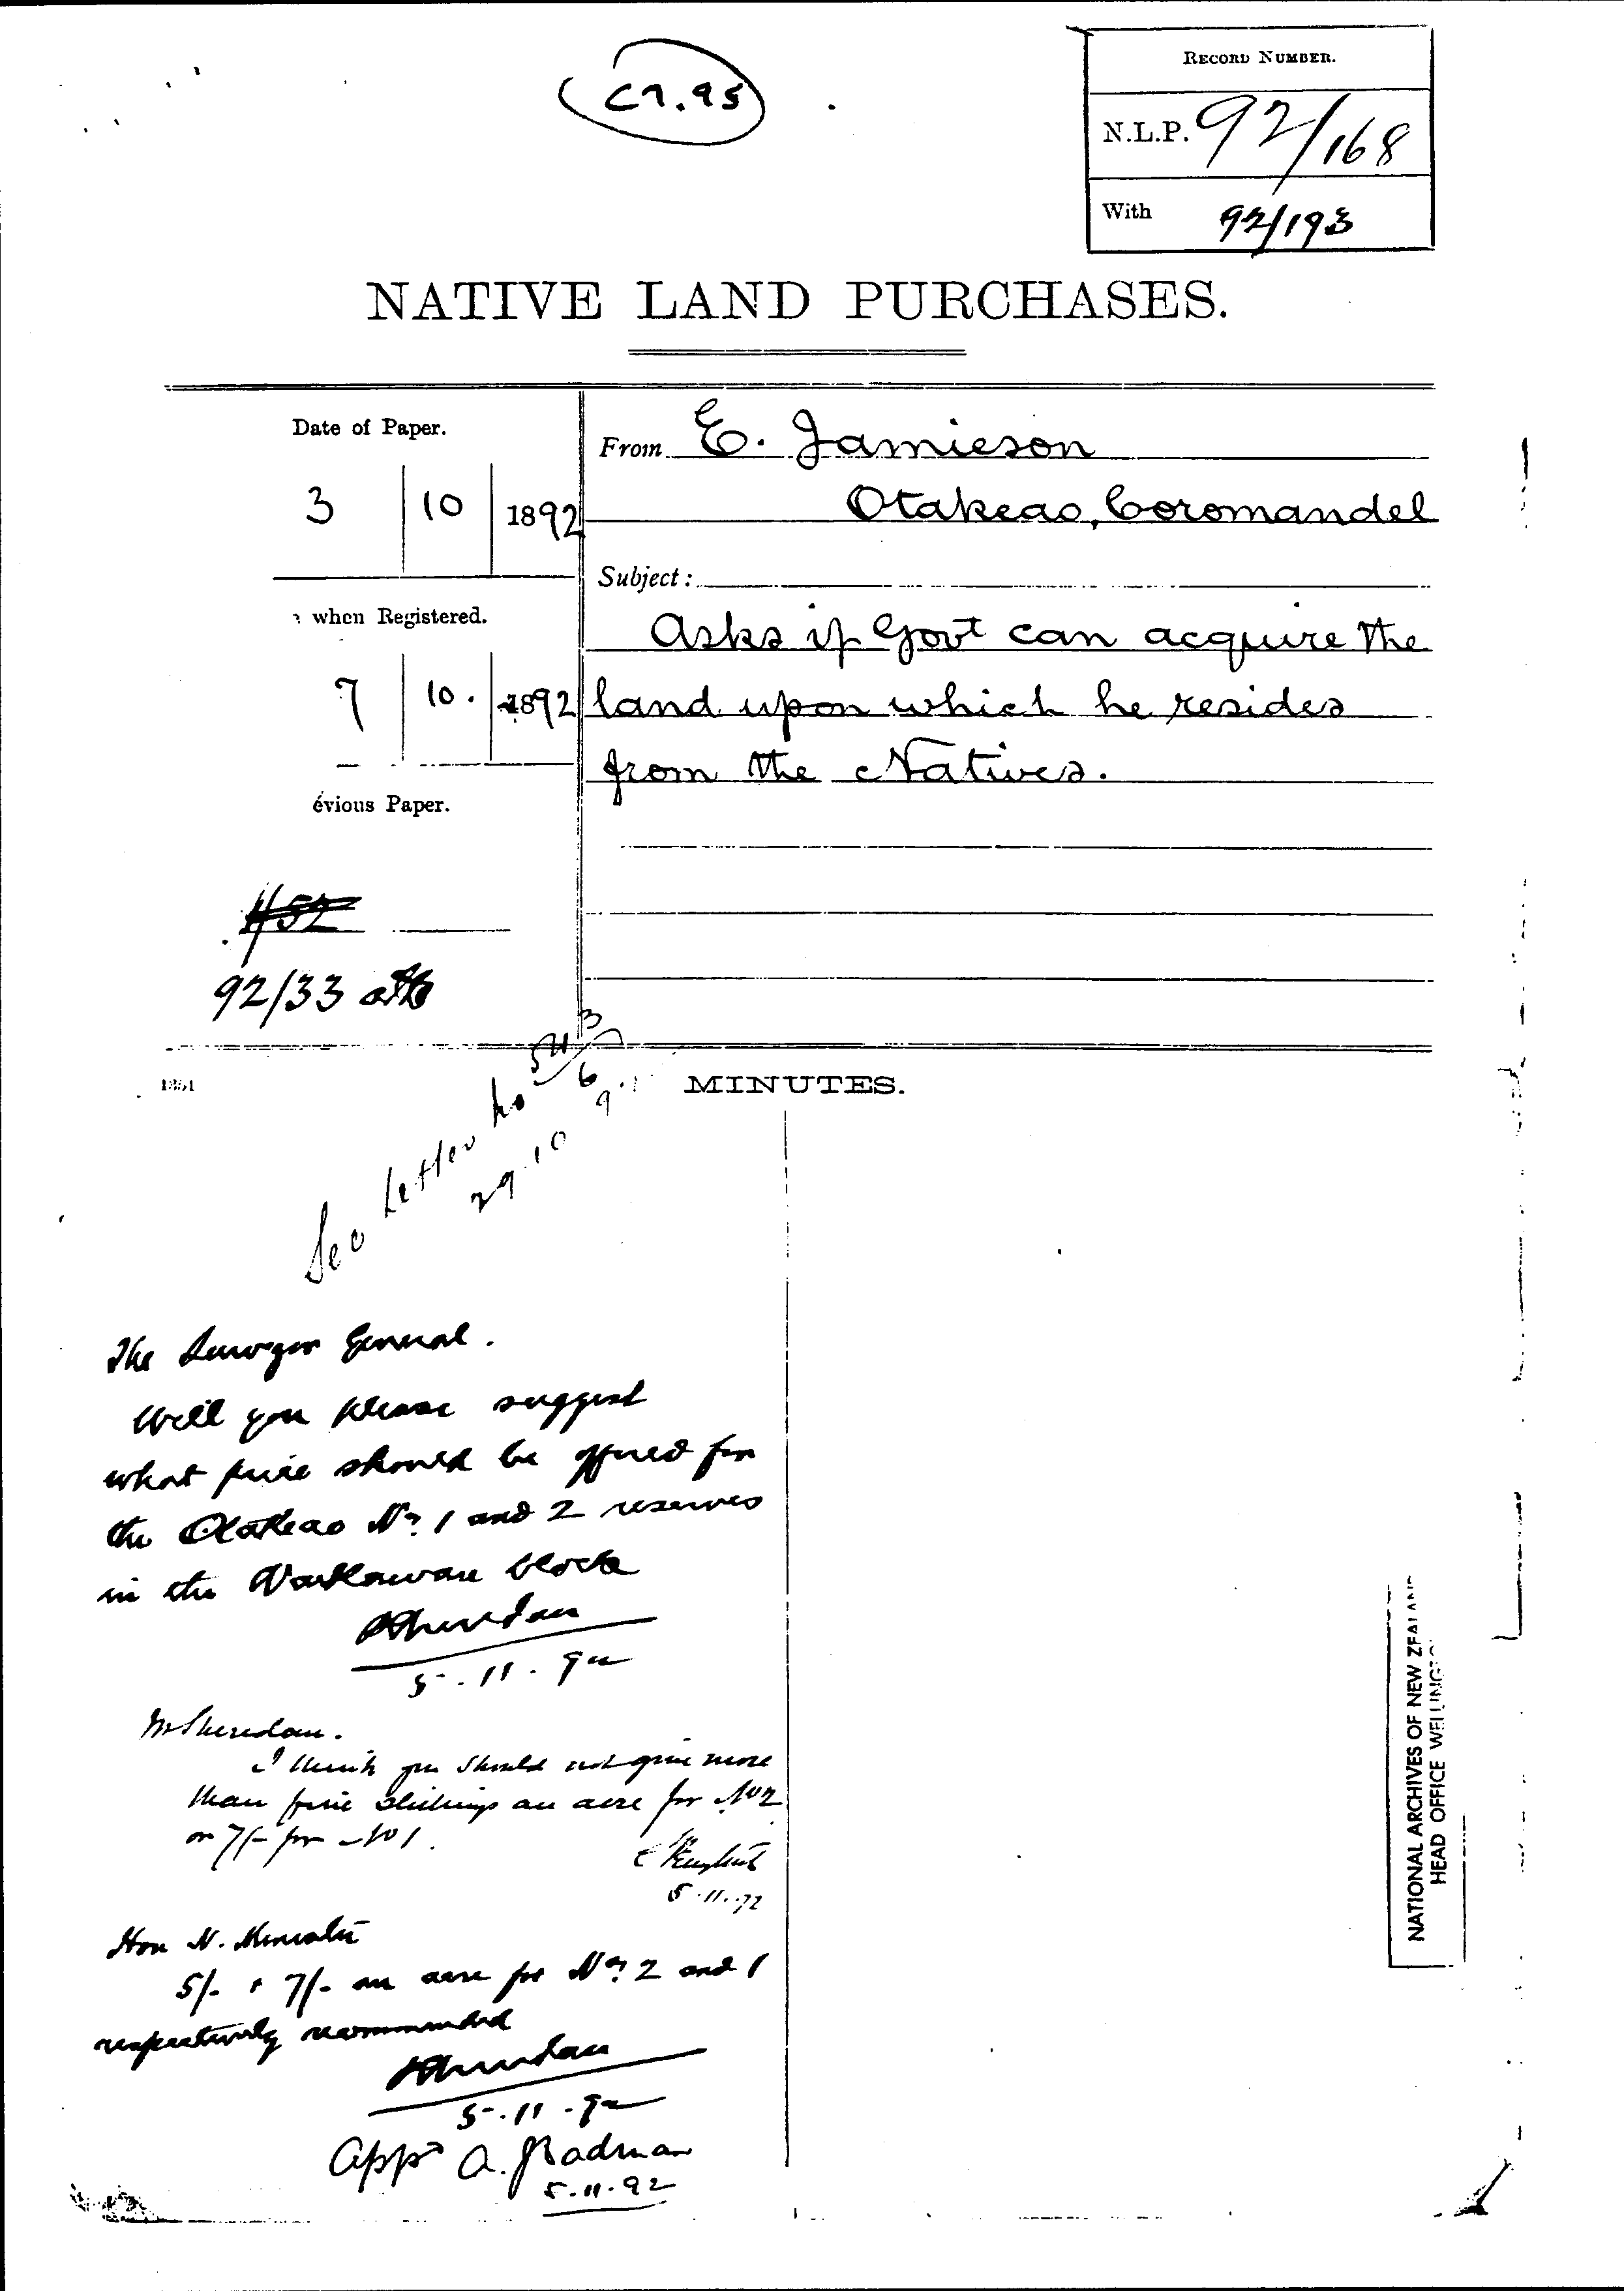 C7.95
RECORD NUMBER.
N.L.P. 92/168
With 92/193
NATIVE LAND PURCHASES.
Date of Paper.
3 10 1892
From E. Jamieson
Otakeao, Coromandel
Subject:
when Registered.
7 10. 1892
Asks if Govt can acquire the
land upon which he resides
from the Natives.
évious Paper.
92/33
1351
MINUTES.
See Letter No
29.10.9
The Surveyor General.
Will you please suggest
what price should be offered for
the Otakeao No. 1 and 2 reserves
in the block
PSheridan
5.11.92
Mr Sheridan.
I think you should not give more
than five shillings an acre for No 2
or 7/- for No 1.
5.11.92
Hon N. Minister
5/- & 7/- an acre for No. 2 and 1
respectively recommended
PSheridan
5.11.92
Appd A. J. Cadman
5.11.92
NATIONAL ARCHIVES OF NEW ZEALAND
HEAD OFFICE WELLINGTON